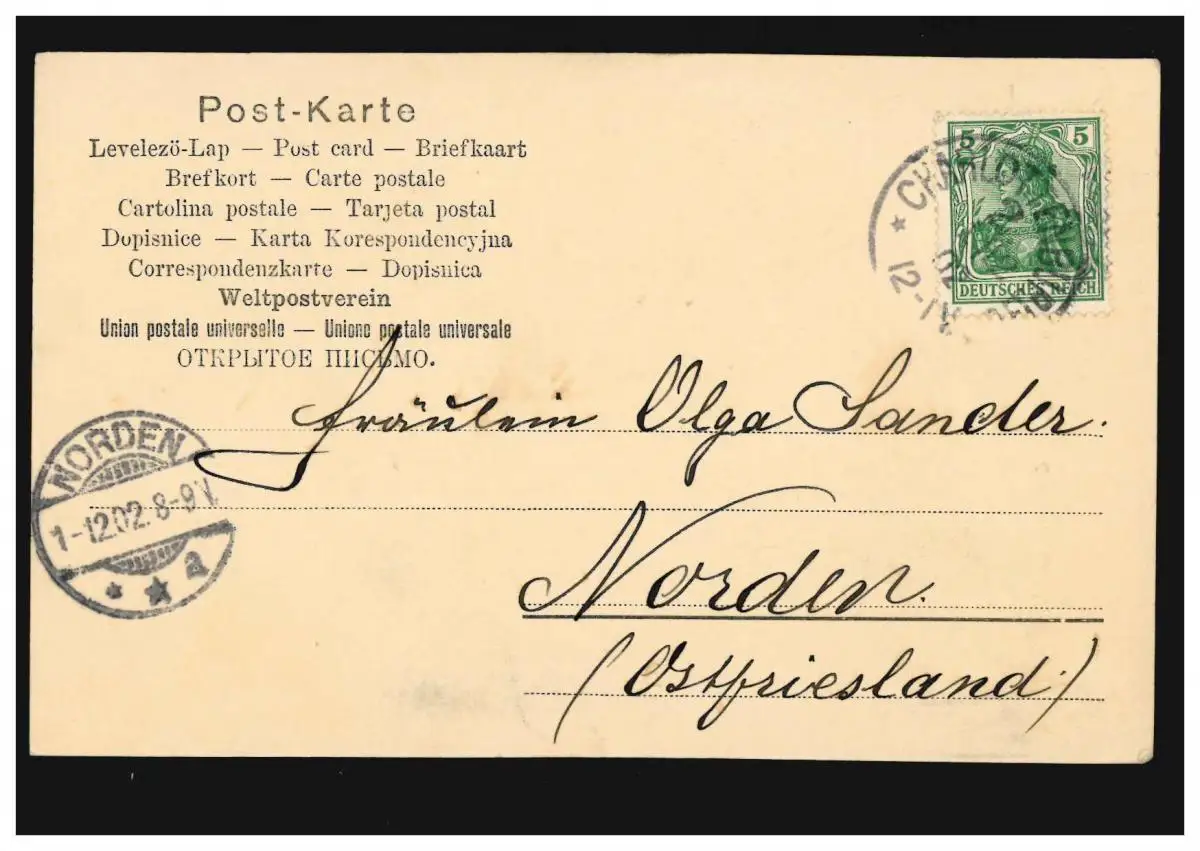 Post-Karte
Levelezö-Lap — Post card — Briefkaart
Brefkort — Carte postale
Cartolina postale — Tarjeta postal
Dopisnice — Karta Korespondencyjna
Correspondenzkarte — Dopisnica
Weltpostverein
Union postale universelle — Unione postale universale
ОТКРЫТОЕ ПИСЬМО.
5 5
DEUTSCHES REICH
12-1V
Fräulein Olga Sander.
NORDEN
1-12.02. 8-9V.
* * a
Norden.
(Ostfriesland)